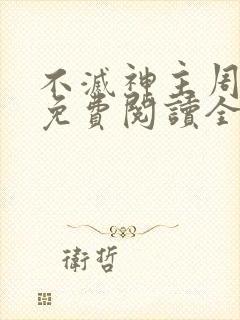 不滅神主周
免費閱讀全
衛哲